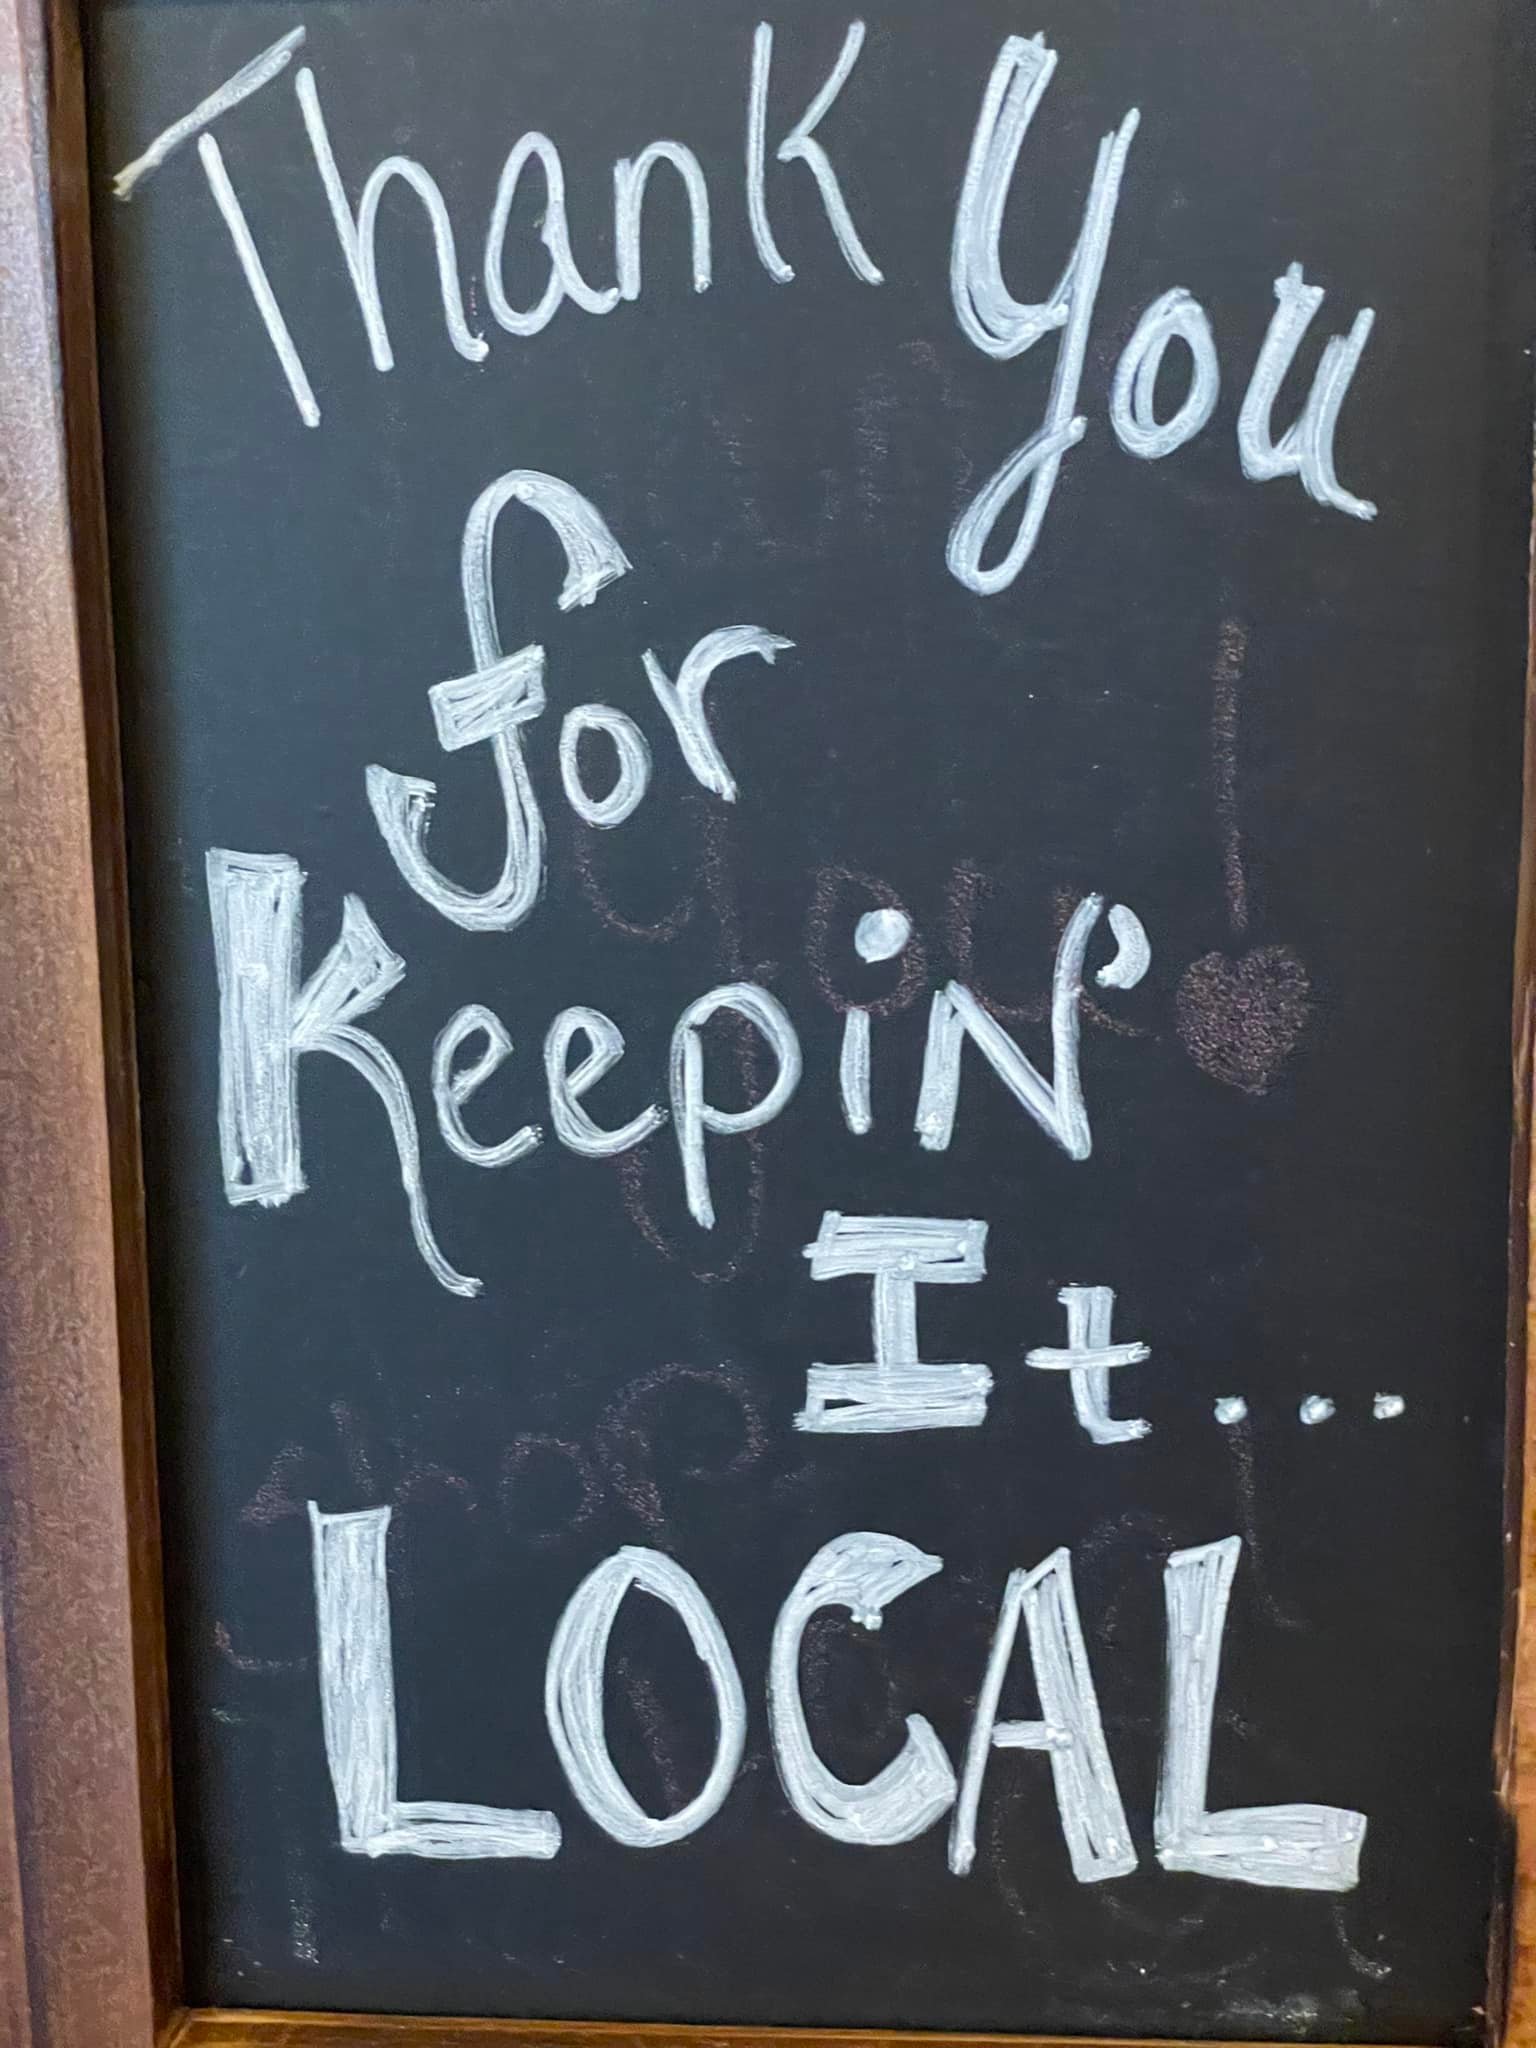 Thank You
for
Keepin'
It...
LOCAL